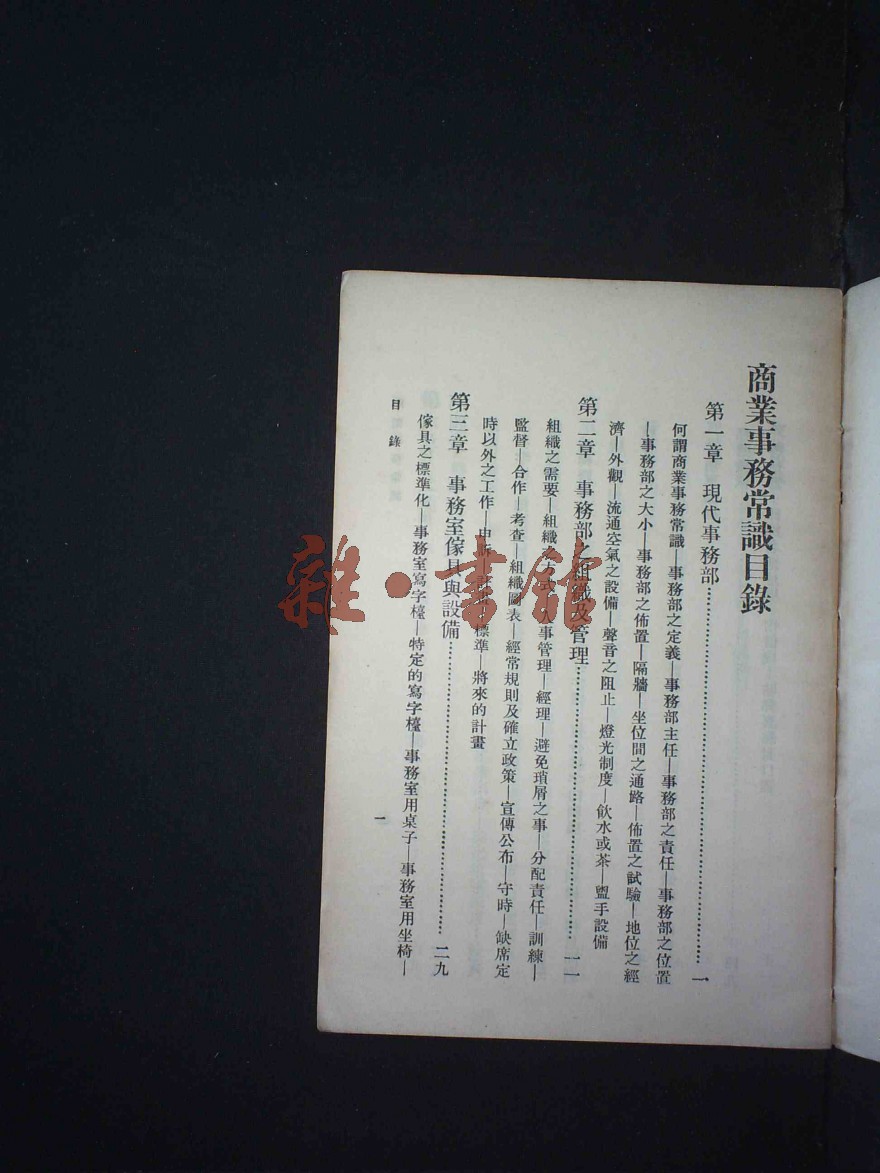 商業事務常識目錄
第一章 現代事務部……一
何謂商業事務常識—事務部之定義—事務部主任—事務部之責任—事務部之位置
—事務部之大小—事務部之佈置—隔牆—坐位間之通路—佈置之試驗—地位之經
濟—外觀—流通空氣之設備—聲音之阻止—燈光制度—飲水或茶—盥手設備
第二章 事務部之組織及管理……一一
組織之需要—組織之方式—人事管理—經理—避免瑣屑之事—分配責任—訓練—
監督—合作—考查—組織圖表—經常規則及確立政策—宣傳公布—守時—缺席定
時以外之工作—申訴—標準—將來的計畫
第三章 事務室傢具與設備……二九
傢具之標準化—事務室寫字檯—特定的寫字檯—事務室用桌子—事務室用坐椅—
目錄
一
雜·書館